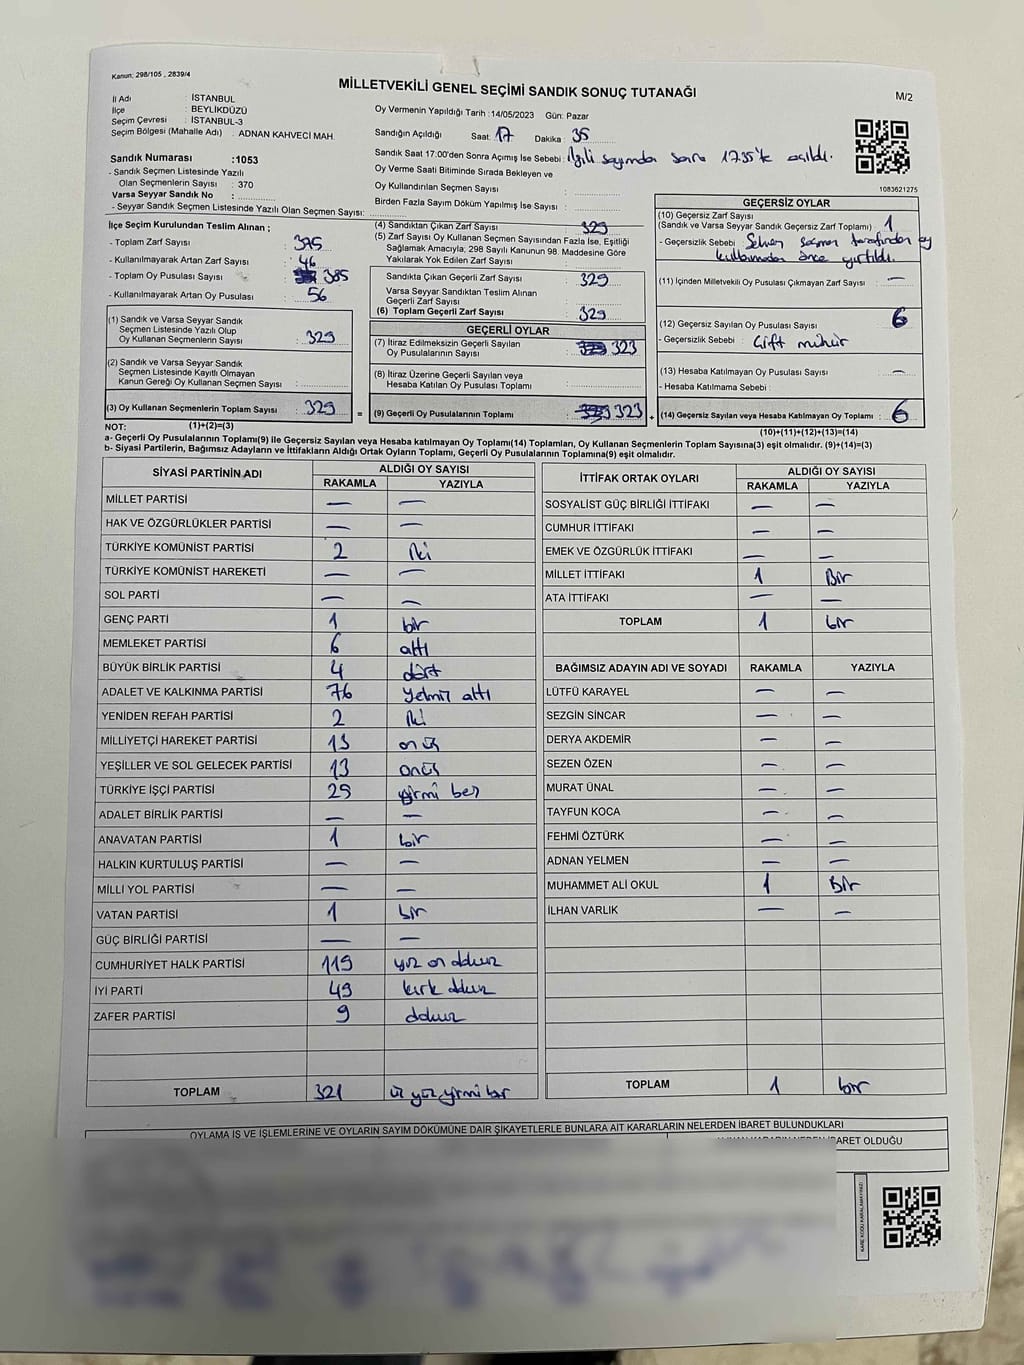 Kanun: 298/105 , 2839/4
MİLLETVEKİLİ GENEL SEÇİMİ SANDIK SONUÇ TUTANAĞI
M/2
İl Adı : İSTANBUL
İlçe : BEYLİKDÜZÜ
Seçim Çevresi : İSTANBUL-3
Seçim Bölgesi (Mahalle Adı) : ADNAN KAHVECİ MAH.
Sandık Numarası :1053
- Sandık Seçmen Listesinde Yazılı
Olan Seçmenlerin Sayısı : 370
Varsa Seyyar Sandık No :
- Seyyar Sandık Seçmen Listesinde Yazılı Olan Seçmen Sayısı:
Oy Vermenin Yapıldığı Tarih :14/05/2023 Gün: Pazar
Sandığın Açıldığı Saat: 17 Dakika: 35
Sandık Saat 17.00'den Sonra Açımış İse Sebebi: İlgili sayımdan sonra 17.35'te açıldı.
Oy Verme Saati Bitiminde Sırada Bekleyen ve
Oy Kullandırılan Seçmen Sayısı :
Birden Fazla Sayım Döküm Yapılmış İse Sayısı :
1083621275
İlçe Seçim Kurulundan Teslim Alınan ;
- Toplam Zarf Sayısı : 375
- Kullanılmayarak Artan Zarf Sayısı : 46
- Toplam Oy Pusulası Sayısı : 385
- Kullanılmayarak Artan Oy Pusulası : 56
(1) Sandık ve Varsa Seyyar Sandık
Seçmen Listesinde Yazılı Olup
Oy Kullanan Seçmenlerin Sayısı : 329
(2) Sandık ve Varsa Seyyar Sandık
Seçmen Listesinde Kayıtlı Olmayan
Kanun Gereği Oy Kullanan Seçmen Sayısı :
(3) Oy Kullanan Seçmenlerin Toplam Sayısı : 329 =
(1)+(2)=(3)
(4) Sandıktan Çıkan Zarf Sayısı : 329
(5) Zarf Sayısı Oy Kullanan Seçmen Sayısından Fazla İse, Eşitliği
Sağlamak Amacıyla, 298 Sayılı Kanunun 98. Maddesine Göre
Yakılarak Yok Edilen Zarf Sayısı :
Sandıkta Çıkan Geçerli Zarf Sayısı : 329
Varsa Seyyar Sandıktan Teslim Alınan
Geçerli Zarf Sayısı :
(6) Toplam Geçerli Zarf Sayısı : 329
GEÇERLİ OYLAR
(7) İtiraz Edilmeksizin Geçerli Sayılan
Oy Pusulalarının Sayısı : 323
(8) İtiraz Üzerine Geçerli Sayılan veya
Hesaba Katılan Oy Pusulası Toplamı :
(9) Geçerli Oy Pusulalarının Toplamı : 323 +
GEÇERSİZ OYLAR
(10) Geçersiz Zarf Sayısı
(Sandık ve Varsa Seyyar Sandık Geçersiz Zarf Toplamı) : 1
- Geçersizlik Sebebi : Sehven seçmen tarafından oy
kullanmadan önce yırtıldı.
(11) İçinden Milletvekili Oy Pusulası Çıkmayan Zarf Sayısı : —
(12) Geçersiz Sayılan Oy Pusulası Sayısı : 6
- Geçersizlik Sebebi : Çift mühür
(13) Hesaba Katılmayan Oy Pusulası Sayısı : —
- Hesaba Katılmama Sebebi :
(14) Geçersiz Sayılan veya Hesaba Katılmayan Oy Toplamı : 6
(10)+(11)+(12)+(13)=(14)
NOT:
a- Geçerli Oy Pusulalarının Toplamı(9) İle Geçersiz Sayılan veya Hesaba katılmayan Oy Toplamı(14) Toplamları, Oy Kullanan Seçmenlerin Toplam Sayısına(3) eşit olmalıdır. (9)+(14)=(3)
b- Siyasi Partilerin, Bağımsız Adayların ve İttifakların Aldığı Ortak Oyların Toplamı, Geçerli Oy Pusulalarının Toplamına(9) eşit olmalıdır.
SİYASİ PARTİNİN ADI ALDIĞI OY SAYISI
RAKAMLA YAZIYLA
MİLLET PARTİSİ — —
HAK VE ÖZGÜRLÜKLER PARTİSİ — —
TÜRKİYE KOMÜNİST PARTİSİ 2 iki
TÜRKİYE KOMÜNİST HAREKETİ — —
SOL PARTİ — —
GENÇ PARTİ 1 bir
MEMLEKET PARTİSİ 6 altı
BÜYÜK BİRLİK PARTİSİ 4 dört
ADALET VE KALKINMA PARTİSİ 76 yetmiş altı
YENİDEN REFAH PARTİSİ 2 iki
MİLLİYETÇİ HAREKET PARTİSİ 13 onüç
YEŞİLLER VE SOL GELECEK PARTİSİ 13 onüç
TÜRKİYE İŞÇİ PARTİSİ 25 yirmi beş
ADALET BİRLİK PARTİSİ — —
ANAVATAN PARTİSİ 1 bir
HALKIN KURTULUŞ PARTİSİ — —
MİLLİ YOL PARTİSİ — —
VATAN PARTİSİ 1 bir
GÜÇ BİRLİĞİ PARTİSİ — —
CUMHURİYET HALK PARTİSİ 119 yüz on dokuz
İYİ PARTİ 49 kırk dokuz
ZAFER PARTİSİ 9 dokuz
TOPLAM 321 üç yüz yirmi bir
İTTİFAK ORTAK OYLARI ALDIĞI OY SAYISI
RAKAMLA YAZIYLA
SOSYALİST GÜÇ BİRLİĞİ İTTİFAKI — —
CUMHUR İTTİFAKI — —
EMEK VE ÖZGÜRLÜK İTTİFAKI — —
MİLLET İTTİFAKI 1 Bir
ATA İTTİFAKI — —
TOPLAM 1 bir
BAĞIMSIZ ADAYIN ADI VE SOYADI RAKAMLA YAZIYLA
LÜTFÜ KARAYEL — —
SEZGİN SİNCAR — —
DERYA AKDEMİR — —
SEZEN ÖZEN — —
MURAT ÜNAL — —
TAYFUN KOCA — —
FEHMİ ÖZTÜRK — —
ADNAN YELMEN — —
MUHAMMET ALİ OKUL 1 Bir
İLHAN VARLIK — —
TOPLAM 1 bir
OYLAMA İŞ VE İŞLEMLERİNE VE OYLARIN SAYIM DÖKÜMÜNE DAİR ŞİKAYETLERLE BUNLARA AİT KARARLARIN NELERDEN İBARET BULUNDUKLARI
İBARET OLDUĞU
KARE KODU KARALAMAYINIZ!